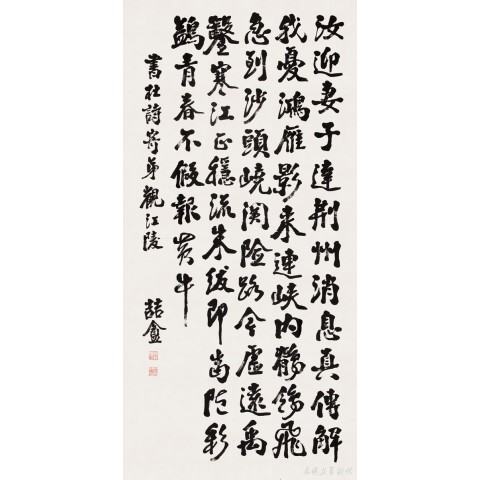 汝迎妻子達荆州消息真傳解
我憂鴻雁影来連峽内鶺鴒飛
急到沙頭嶢関險路今虛遠禹
鑿寒江正穩流朱紱即當隨彩
鷁青春不假報黄牛
書杜詩寄弟觀江陵
盦